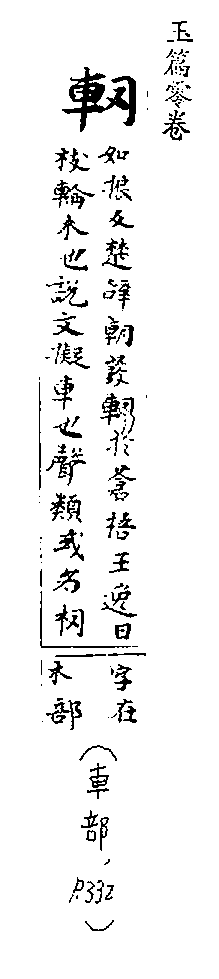 玉篇零卷
軔
如振反楚辞朝發軔於蒼梧王逸曰字在
枝輪木也説文礙車也聲類或為杒木部
(車部,P.332)